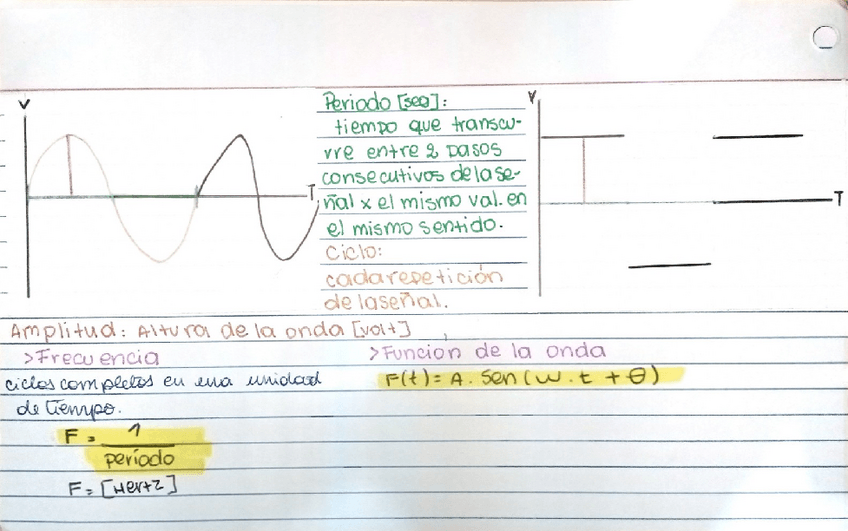 V
T
Periodo [seg]:
tiempo que transcu-
rre entre 2 pasos
consecutivos de la se-
ñal x el mismo val. en
el mismo sentido.
Ciclo:
cada repetición
de la señal.
V
T
Amplitud: Altura de la onda [volt]
>Frecuencia
ciclos completos en una unidad
de tiempo.
F = 1
período
F = [Hertz]
>Funcion de la onda
F(t) = A . Sen (w . t + θ)